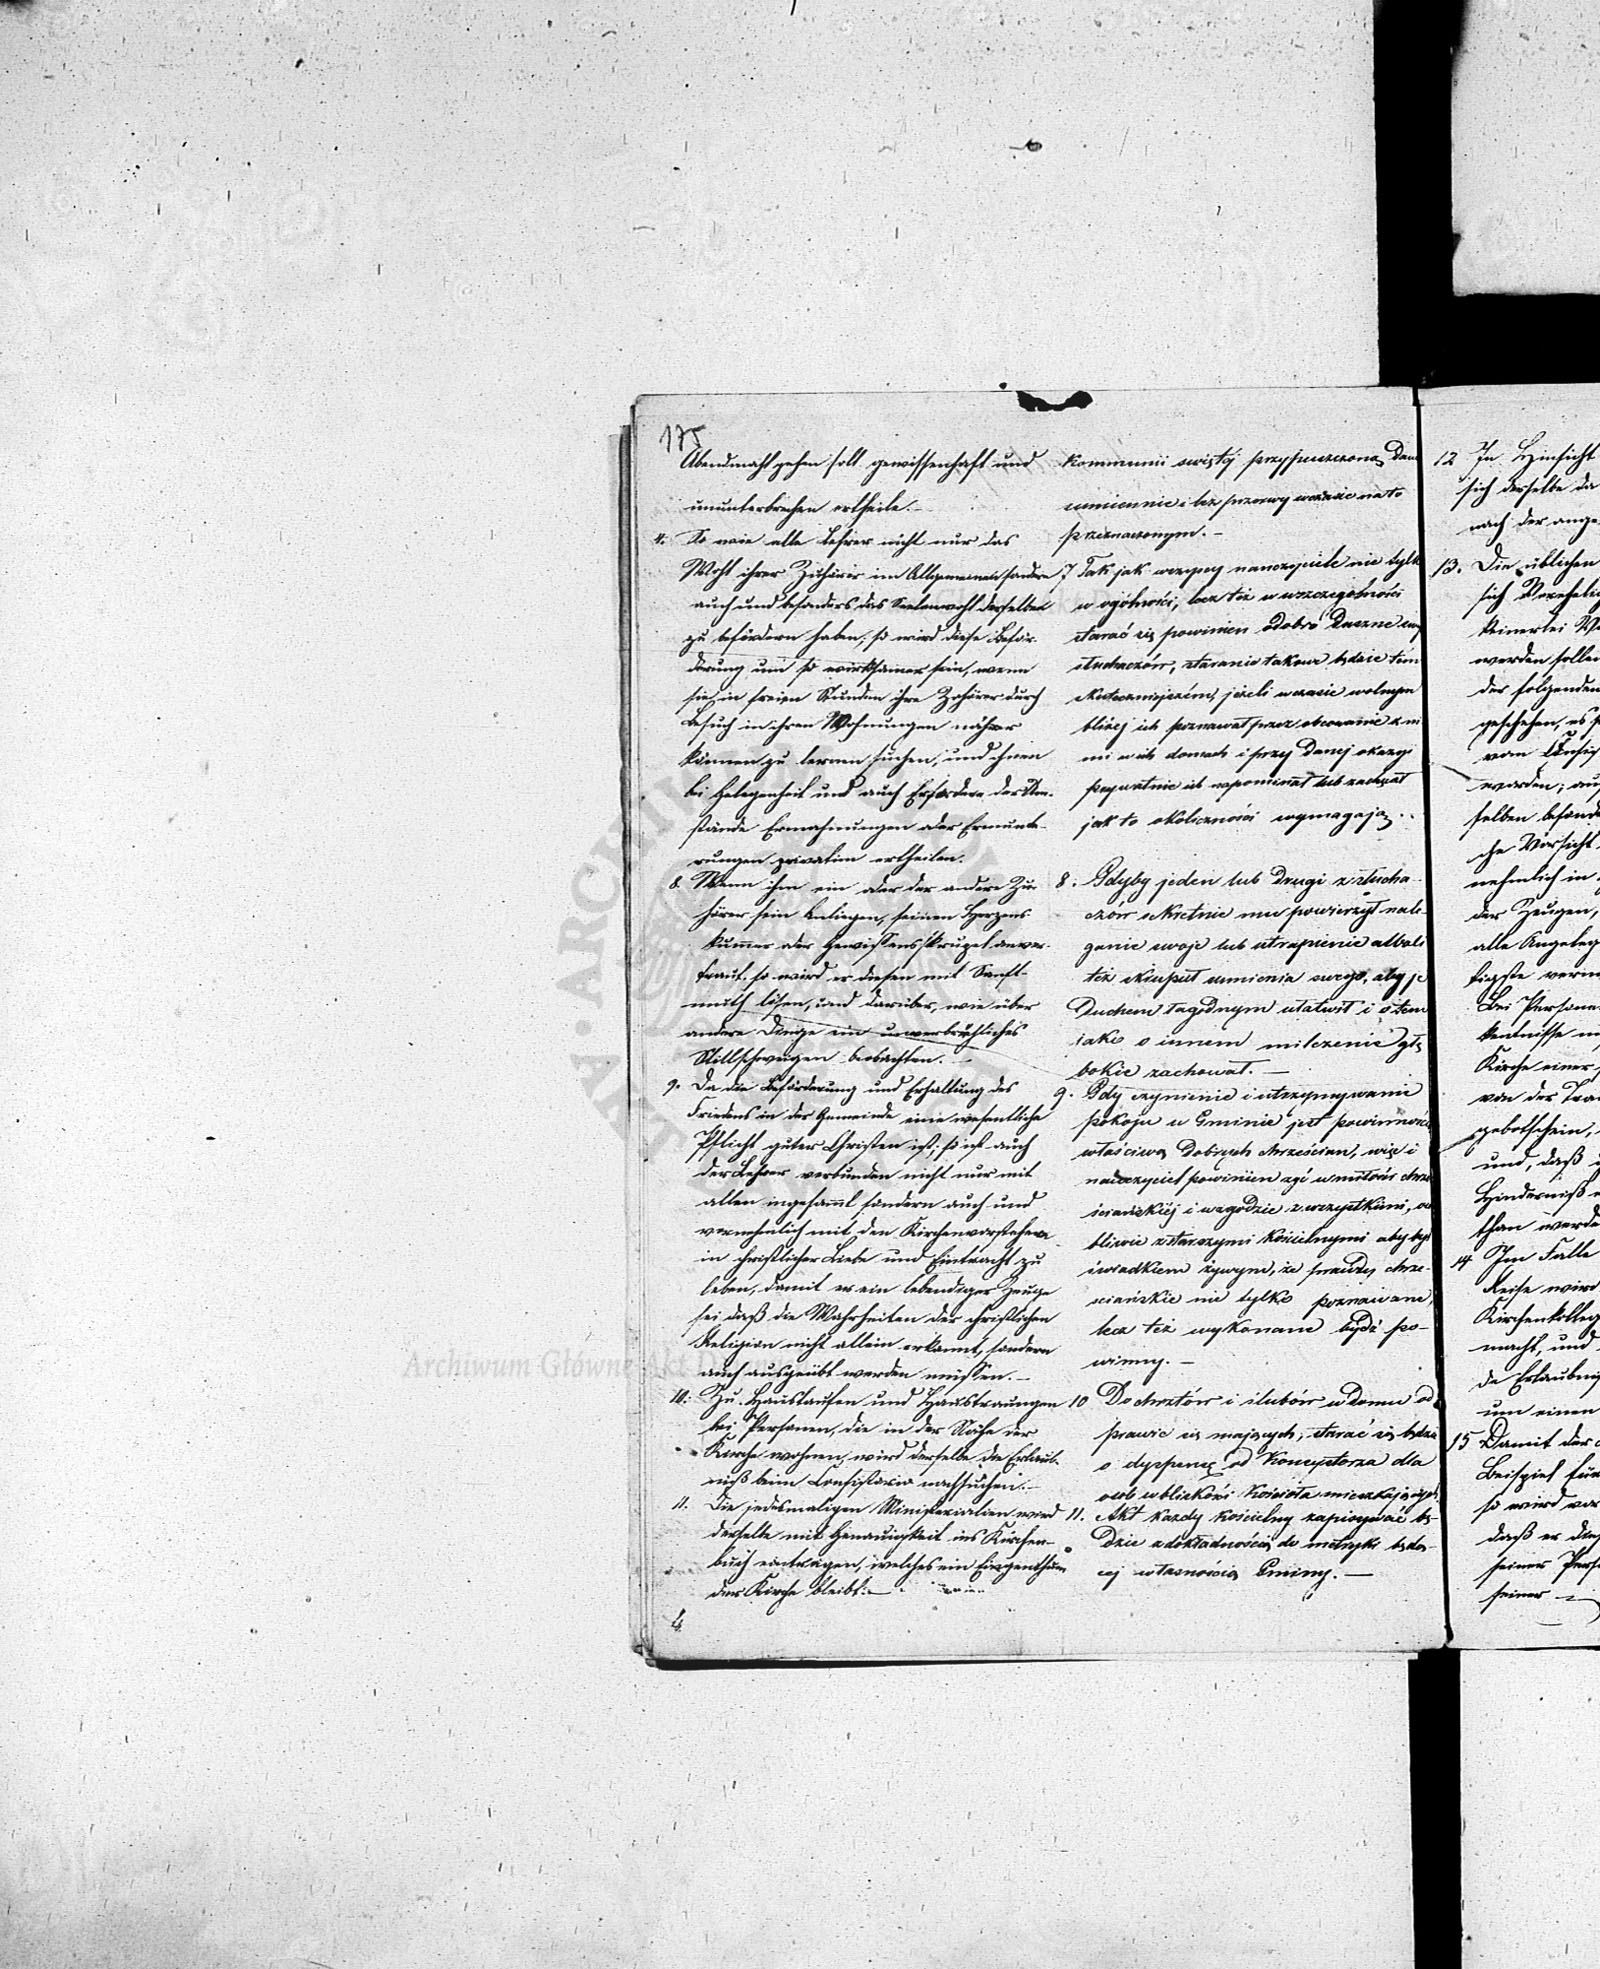 175
Abendmahl gehen soll gewissenhaft und
ununterbrochen ertheile.
So wie alle Lehrer nicht nur das
Wohl ihrer Zuhörer im Allgemeinen sondern
auch und besonders das Seelenwohl derselben
zu befördern haben, so wird diese Beför-
derung um so wirksamer sein, wenn
sie in freien Stunden ihre Zuhörer durch
Besuch in ihren Wohnungen näher
kennen zu lernen suchen, und ihnen
bei Gelegenheit und auch Erfordern der Um-
stände Ermahnungen oder Ermunte-
rungen privatim ertheilen.
8. Wenn ihm ein oder der andere Zu-
hörer sein Anliegen, seinen Herzens
kummer oder Gewissensskrupel anver-
traut, so wird er diesen mit Sanft-
muth lösen, und darüber, wie über
andere Dinge ein unverbrüchliches
Stillschweigen beobachten.
9. Da die Beförderung und Erhaltung des
Friedens in der Gemeinde eine wesentliche
Pflicht guter Christen ist; so ist auch
der Lehrer verbunden nicht nur mit
allen ingesammt sondern auch und
vornehmlich mit den Kirchenvorstehern
in christlicher Liebe und Eintracht zu
leben, damit er ein lebendiger Zeuge
sei daß die Wahrheiten der christlichen
Religion nicht allein erkannt, sondern
auch ausgeübt werden müssen.
10. Zu Haustaufen und Haustrauungen
bei Personen, die in der Nähe der
Kirche wohnen, wird derselbe die Erlaub-
niß beim Consistorio nachsuchen.
11. Die jedesmaligen Ministerialien wird
derselbe mit Genauigkeit ins Kirchen-
buch eintragen, welches ein Eigenthum
der Kirche bleibt.
4
Kommunii swiętéj przypuszczoną
sumiennie i bez przerwy wczasie na to
przeznaczonym.
7 Tak jak wszyscy nauczyciele nie tylko
w ogólności, lecz téż w wszczególności
starać się powinien o dobro Duszne
słuchaczów, staranie takowe będzie tém
skuteczniejszém, jeżeli w czasie wolnym
bliżéj ich poznawał przez obcowanie z ni
mi w ich domach i przy danej okazyi
prywatnie ich napominał lub zachęcał
jak to okoliczności wymagają.
8. Gdyby jeden lub drugi z słucha-
czów sekretnie mu powierzył nale-
ganie swoje lub utrapienie albo li
też skrupuł sumienia swego, aby je
Duchem łagodnym ułatwił i o tém
jako o innem milczenie głę
bokie zachował.
9. Gdy czynienie i utrzymywanie
pokoju w Gminie jest powinności
właściwą dobrych chrześcian, więc i
nauczyciel powinien żyć w miłości chrze
ściańskiéj i w zgodzie z wszystkimi, oso
bliwie z starszymi kościelnymi aby był
świadkiem żywym, że prawdy chrze-
sciańskie nie tylko poznawane,
lecz też wykonane bydź po-
winny.
10 Do chrztów i ślubów w domu od
prawić się mających, starać się będzie
o dyspensę od Konsystorza dla
osób w bliskości kościoła mieszkających.
11. Akt każdy kościelny zapisywać bę-
dzie z dokładnością do metryki będą-
cej własnością Gminy.
12 In Hinsicht
sich derselbe da
nach der ange
13. Die üblichen
sich Verehelig
keinerlei
werden sollen
der folgenden
geschehen, es
vom
werden; auf
selben besonde
che Vorsicht
nehmlich in
der Zeugen,
alle Angeleg
Bei Persona
kenntnisse
Kirche einer
von der Trau
und, daß
Hinderniß
than werde
14 Im Falle
Reise wird
Kirchenkolleg
macht, und
die Erlaubniß
um einen
15 Damit der
Beispiel für
so wird
daß er
seiner Pers
seiner
Archiwum Główne Akt D